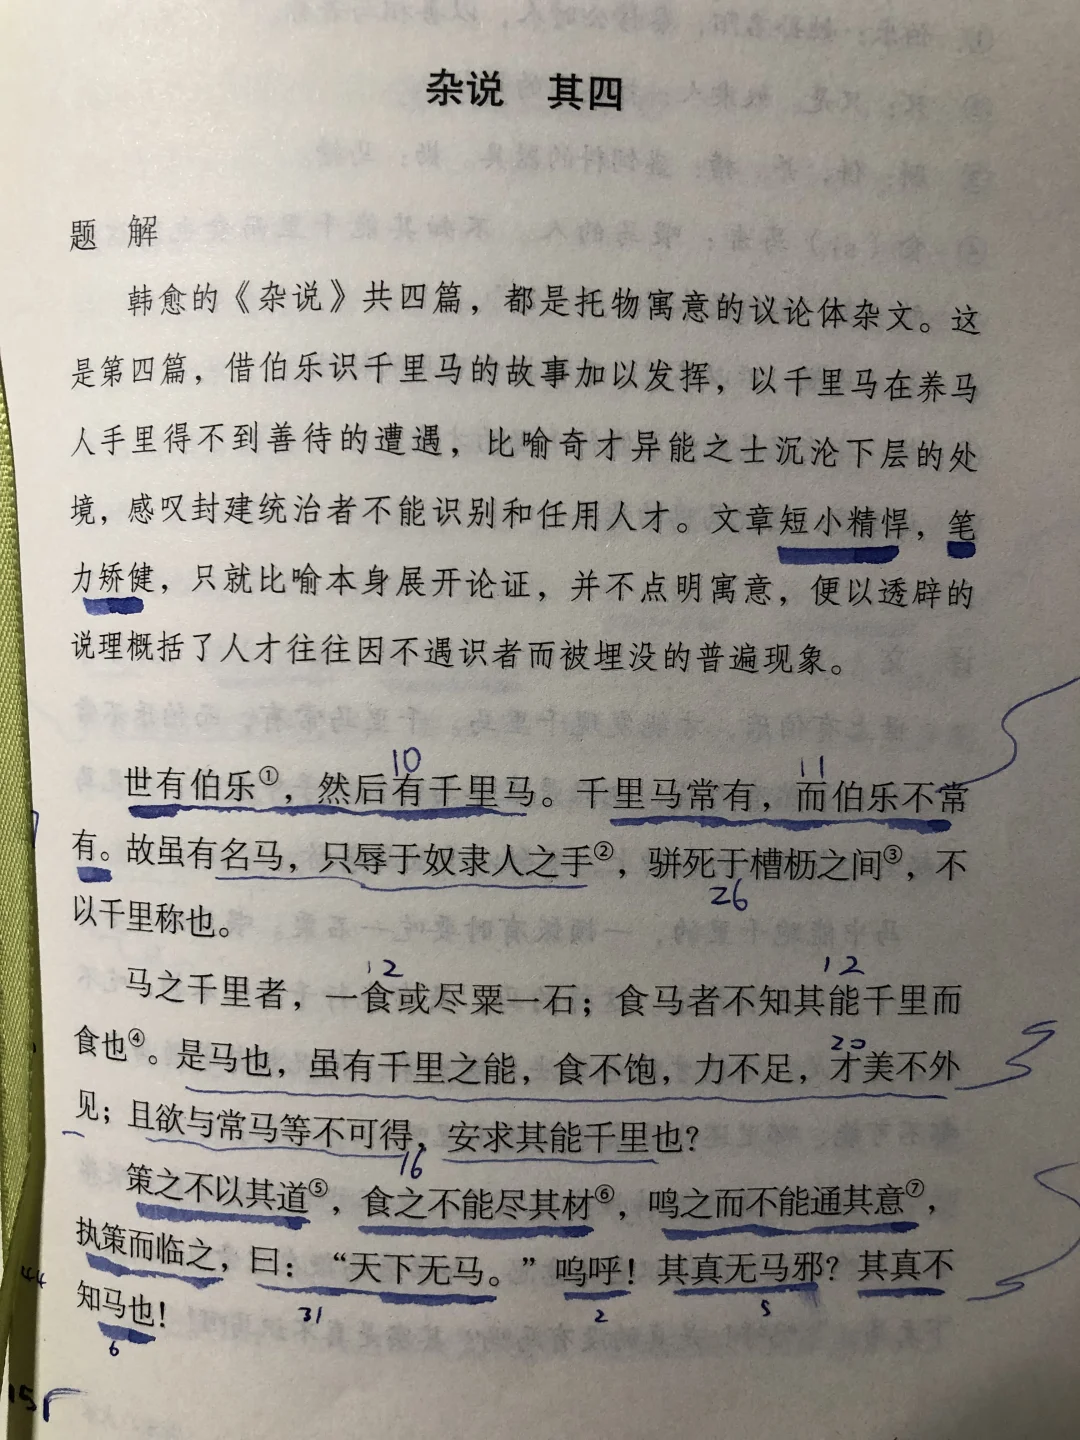 杂说 其四
题 解
韩愈的《杂说》共四篇，都是托物寓意的议论体杂文。这
是第四篇，借伯乐识千里马的故事加以发挥，以千里马在养马
人手里得不到善待的遭遇，比喻奇才异能之士沉沦下层的处
境，感叹封建统治者不能识别和任用人才。文章短小精悍，笔
力矫健，只就比喻本身展开论证，并不点明寓意，便以透辟的
说理概括了人才往往因不遇识者而被埋没的普遍现象。
10 11
世有伯乐①，然后有千里马。千里马常有，而伯乐不常
有。故虽有名马，只辱于奴隶人之手②，骈死于槽枥之间③，不
26
以千里称也。
12 12
马之千里者，一食或尽粟一石；食马者不知其能千里而
食也④。是马也，虽有千里之能，食不饱，力不足，才美不外
20
见；且欲与常马等不可得，安求其能千里也？
16
策之不以其道⑤，食之不能尽其材⑥，鸣之而不能通其意⑦，
执策而临之，曰：“天下无马。”呜呼！其真无马邪？其真不
44 31 2 5
知马也！
6
15